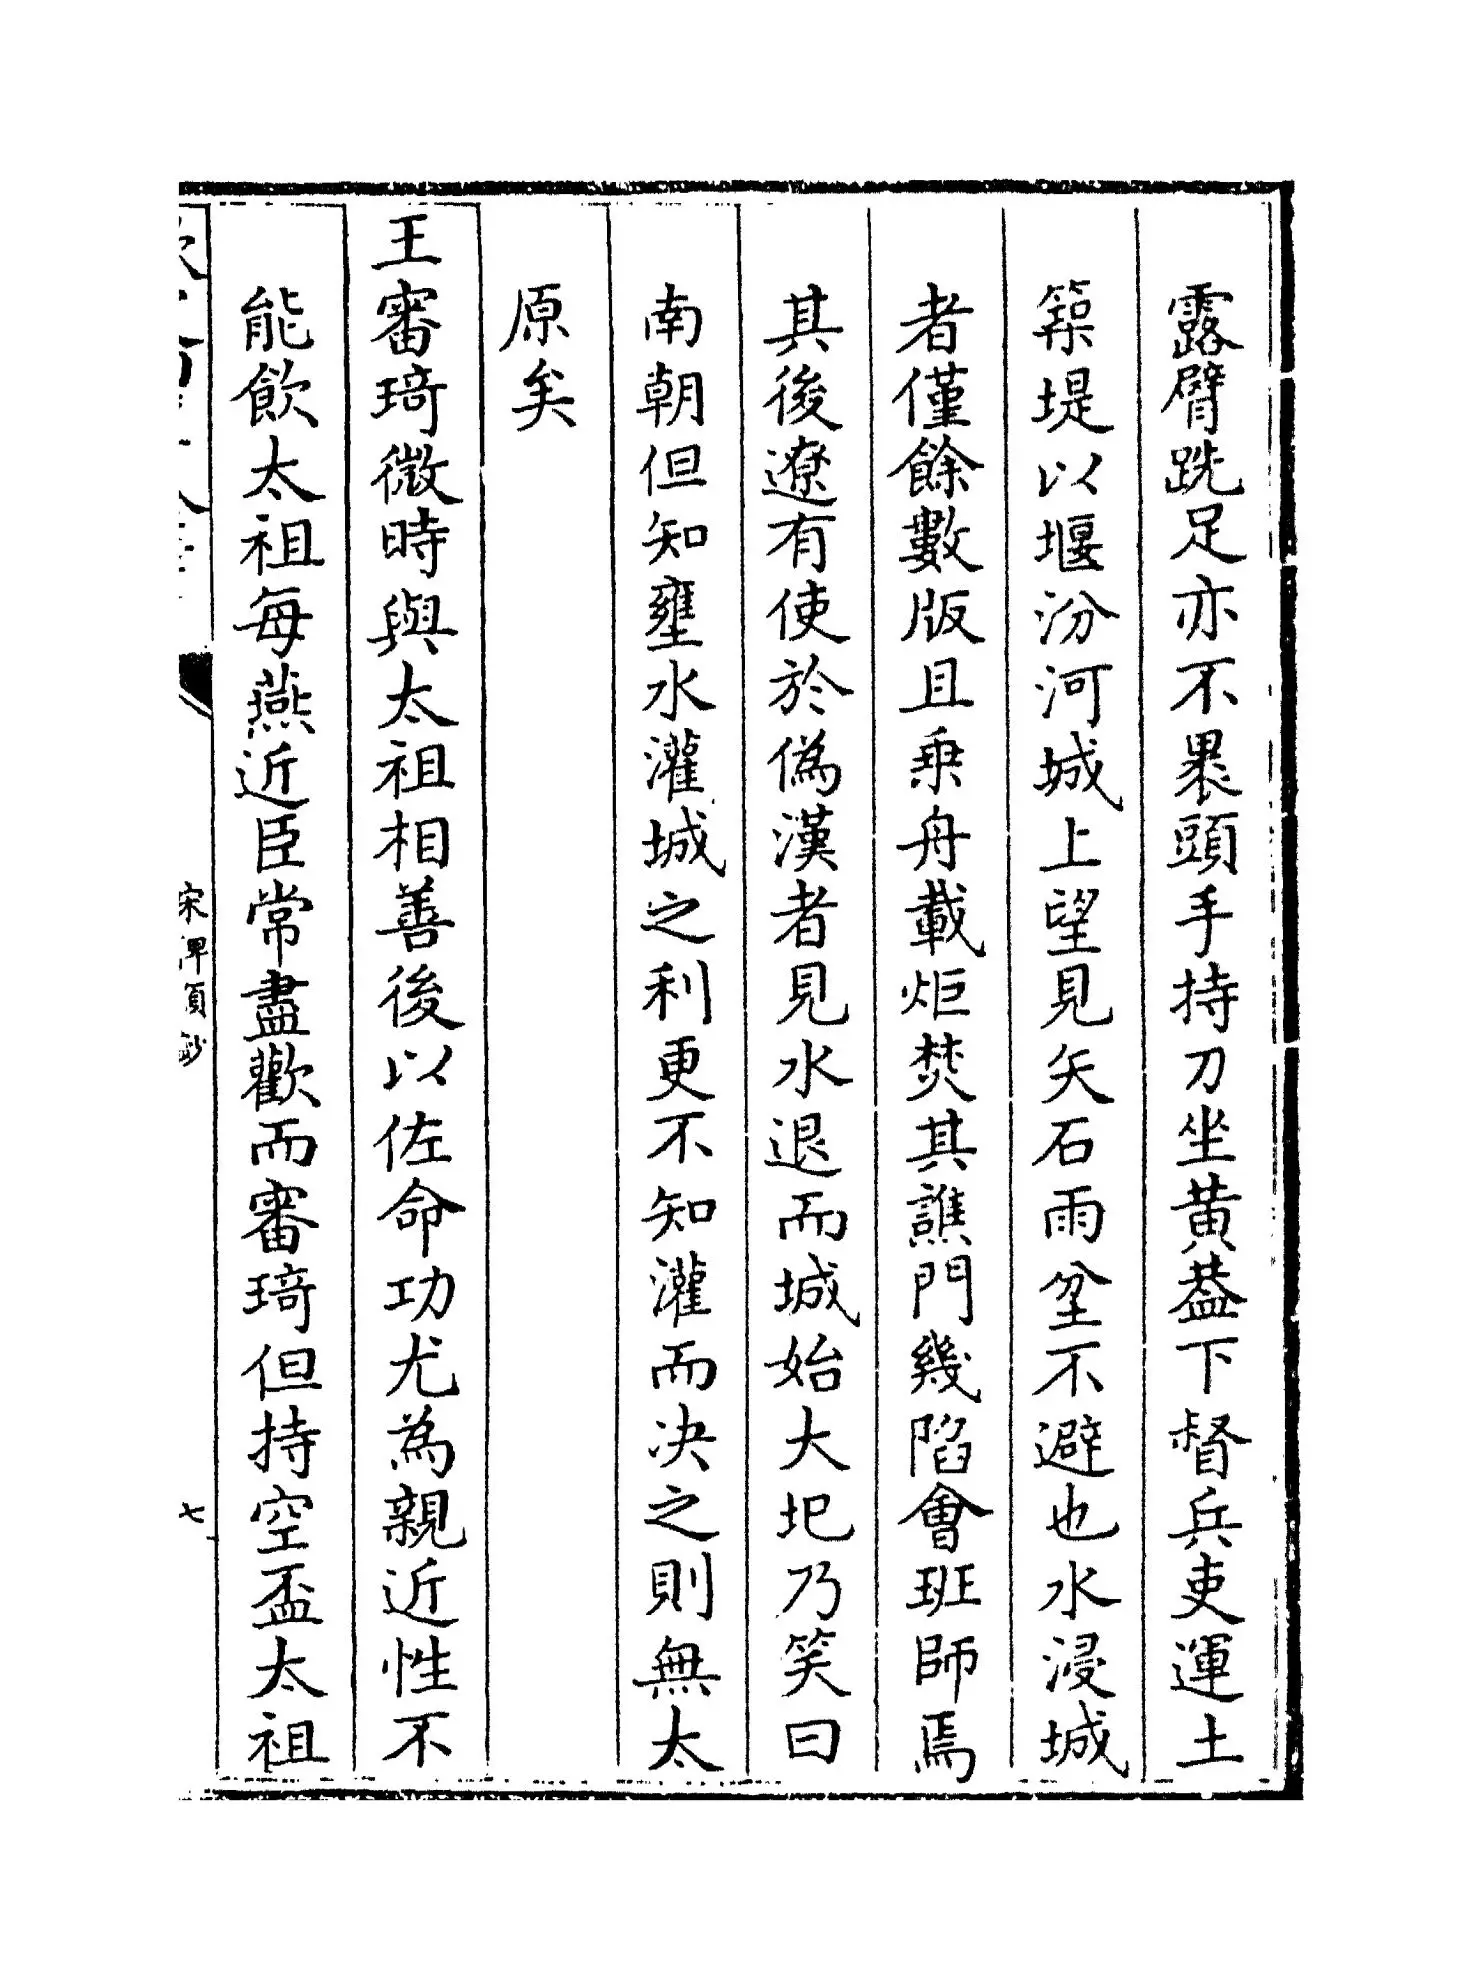 露臂跣足亦不裹頭手持刀坐黄葢下督兵吏運土
築堤以堰汾河城上望見矢石雨坌不避也水浸城
者僅餘數版且乗舟載炬焚其譙門幾陷會班師焉
其後遼有使於偽漢者見水退而城始大圯乃笑曰
南朝但知壅水灌城之利更不知灌而决之則無太
原矣
王審琦微時與太祖相善後以佐命功尤為親近性不
能飲太祖每燕近臣常盡歡而審琦但持空盃太祖
宋稗類鈔
七